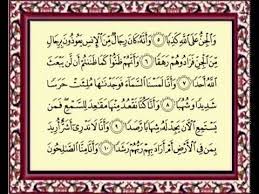 وَٱلْجِنُّ عَلَى ٱللَّهِ كَذِبًا ٥ وَأَنَّهُۥ كَانَ رِجَالٌ مِّنَ ٱلْإِنسِ يَعُوذُونَ بِرِجَالٍ
مِّنَ ٱلْجِنِّ فَزَادُوهُمْ رَهَقًا ٦ وَأَنَّهُمْ ظَنُّوا۟ كَمَا ظَنَنتُمْ أَن لَّن يَبْعَثَ
ٱللَّهُ أَحَدًا ٧ وَأَنَّا لَمَسْنَا ٱلسَّمَآءَ فَوَجَدْنَٰهَا مُلِئَتْ حَرَسًا
شَدِيدًا وَشُهُبًا ٨ وَأَنَّا كُنَّا نَقْعُدُ مِنْهَا مَقَٰعِدَ لِلسَّمْعِ فَمَن
يَسْتَمِعِ ٱلْـَٔانَ يَجِدْ لَهُۥ شِهَابًا رَّصَدًا ٩ وَأَنَّا لَا نَدْرِىٓ أَشَرٌّ أُرِيدَ
بِمَن فِى ٱلْأَرْضِ أَمْ أَرَادَ بِهِمْ رَبُّهُمْ رَشَدًا ١٠ وَأَنَّا مِنَّا ٱلصَّٰلِحُونَ